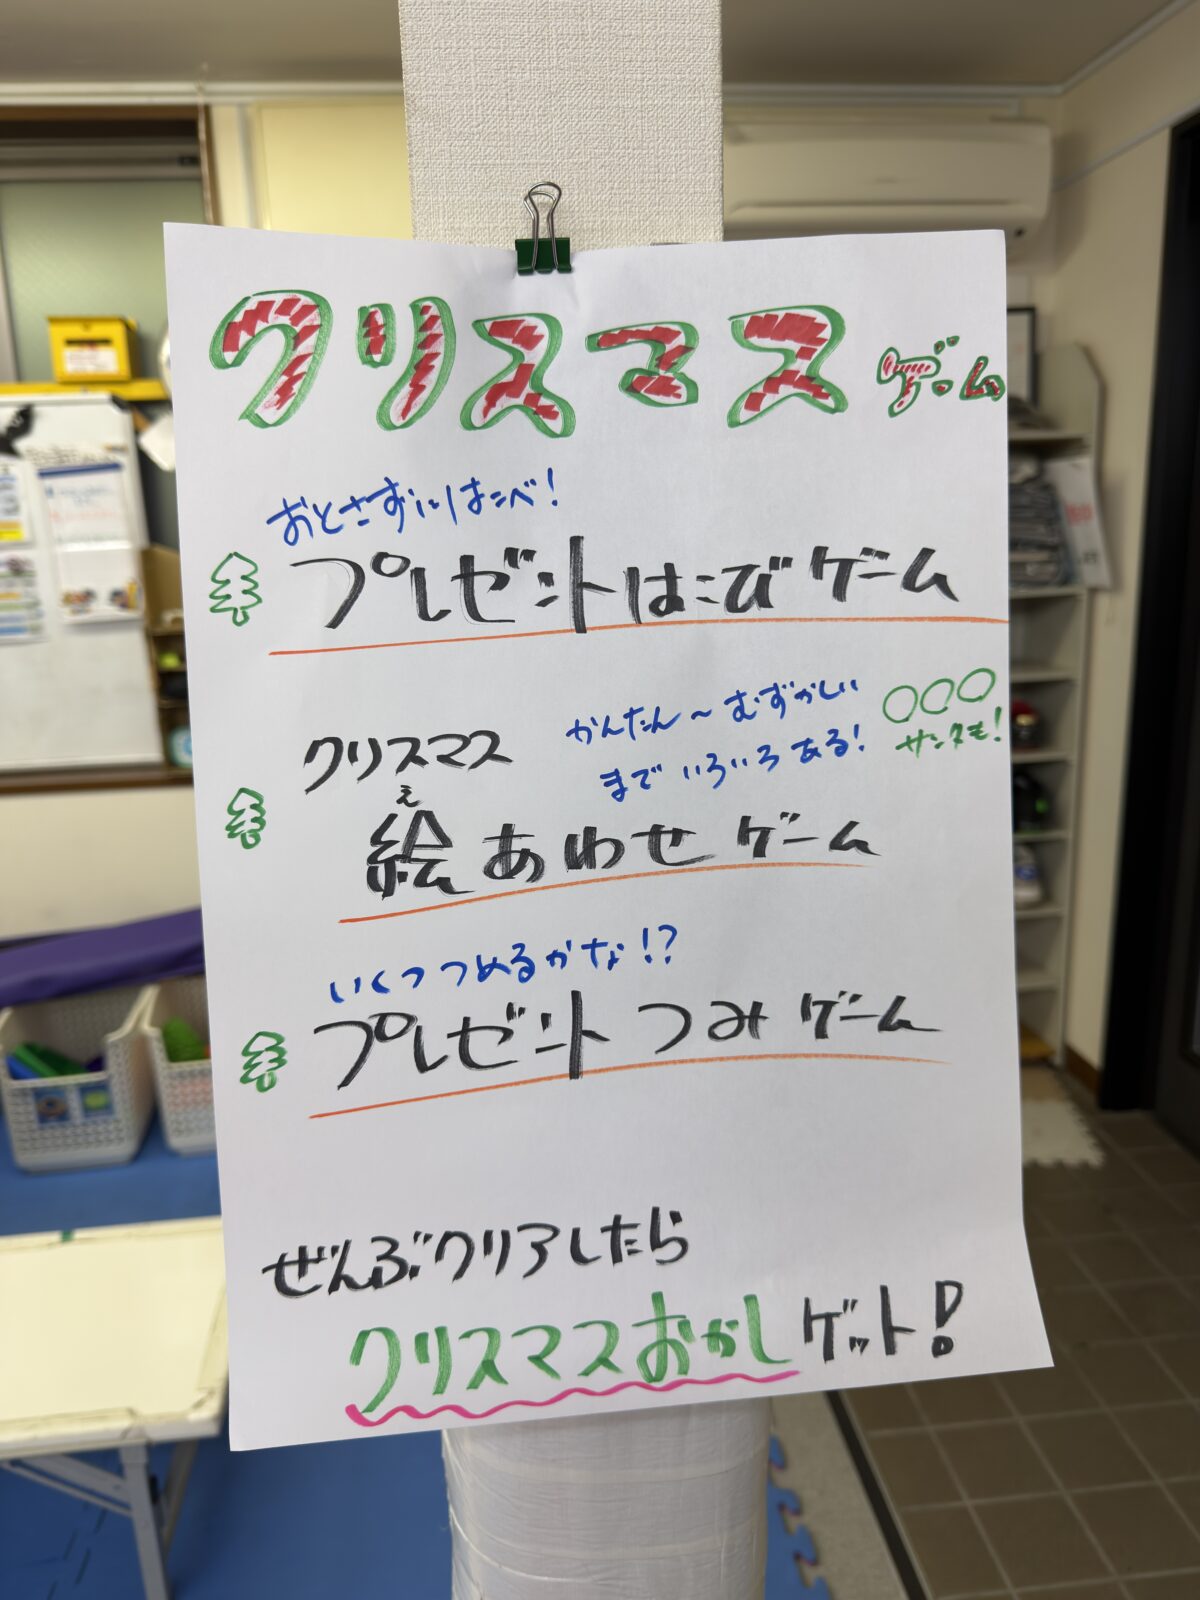 クリスマスゲーム
おとさずにはこべ!
プレゼントはこびゲーム
クリスマス
かんたん～むずかしい
まで いろいろ ある!
○○○
サンタも!
え
絵あわせゲーム
いくつつめるかな!?
プレゼントつみゲーム
ぜんぶクリアしたら
クリスマスおかしゲット!